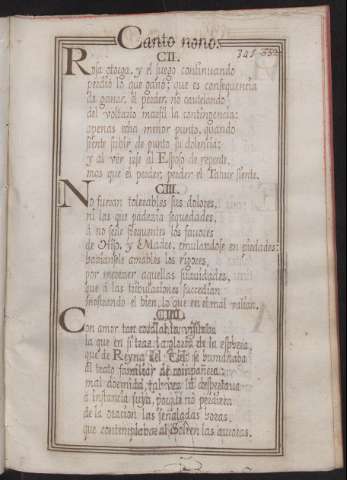 Canto nono.
341
CII.
Rosa otorga, y el juego continuando
perdió lo que ganó; que es consequencia
da ganar, el perder, no cautelando
del voltario la contingencia:
apenas menor punto, quando
siente subir de punto su dolencia;
y al ver que al Esposo de repente,
mas que el perder, perder el Tahur siente.
CIII.
No fueran tolerables sus dolores,
ni las que padezia sequedades,
à no serle frequentes los favores
de Hijo, y Madre, emulandose en piedades:
haziansele amables los rigores,
por merecer aquellas suavidades,
que à las tribulaciones sucedian
mostrando el bien, lo que en el mal valian.
CIIII.
Con amor tan
la que en si trae la de la esphera,
que de Reyna del se humanaba
al trato familiar de compañera:
mal dormida, tal vez la despertava
à instancia suya, porque no perdiera
de la oracion las señaladas horas,
que contemplaba al Sol en las auroras.